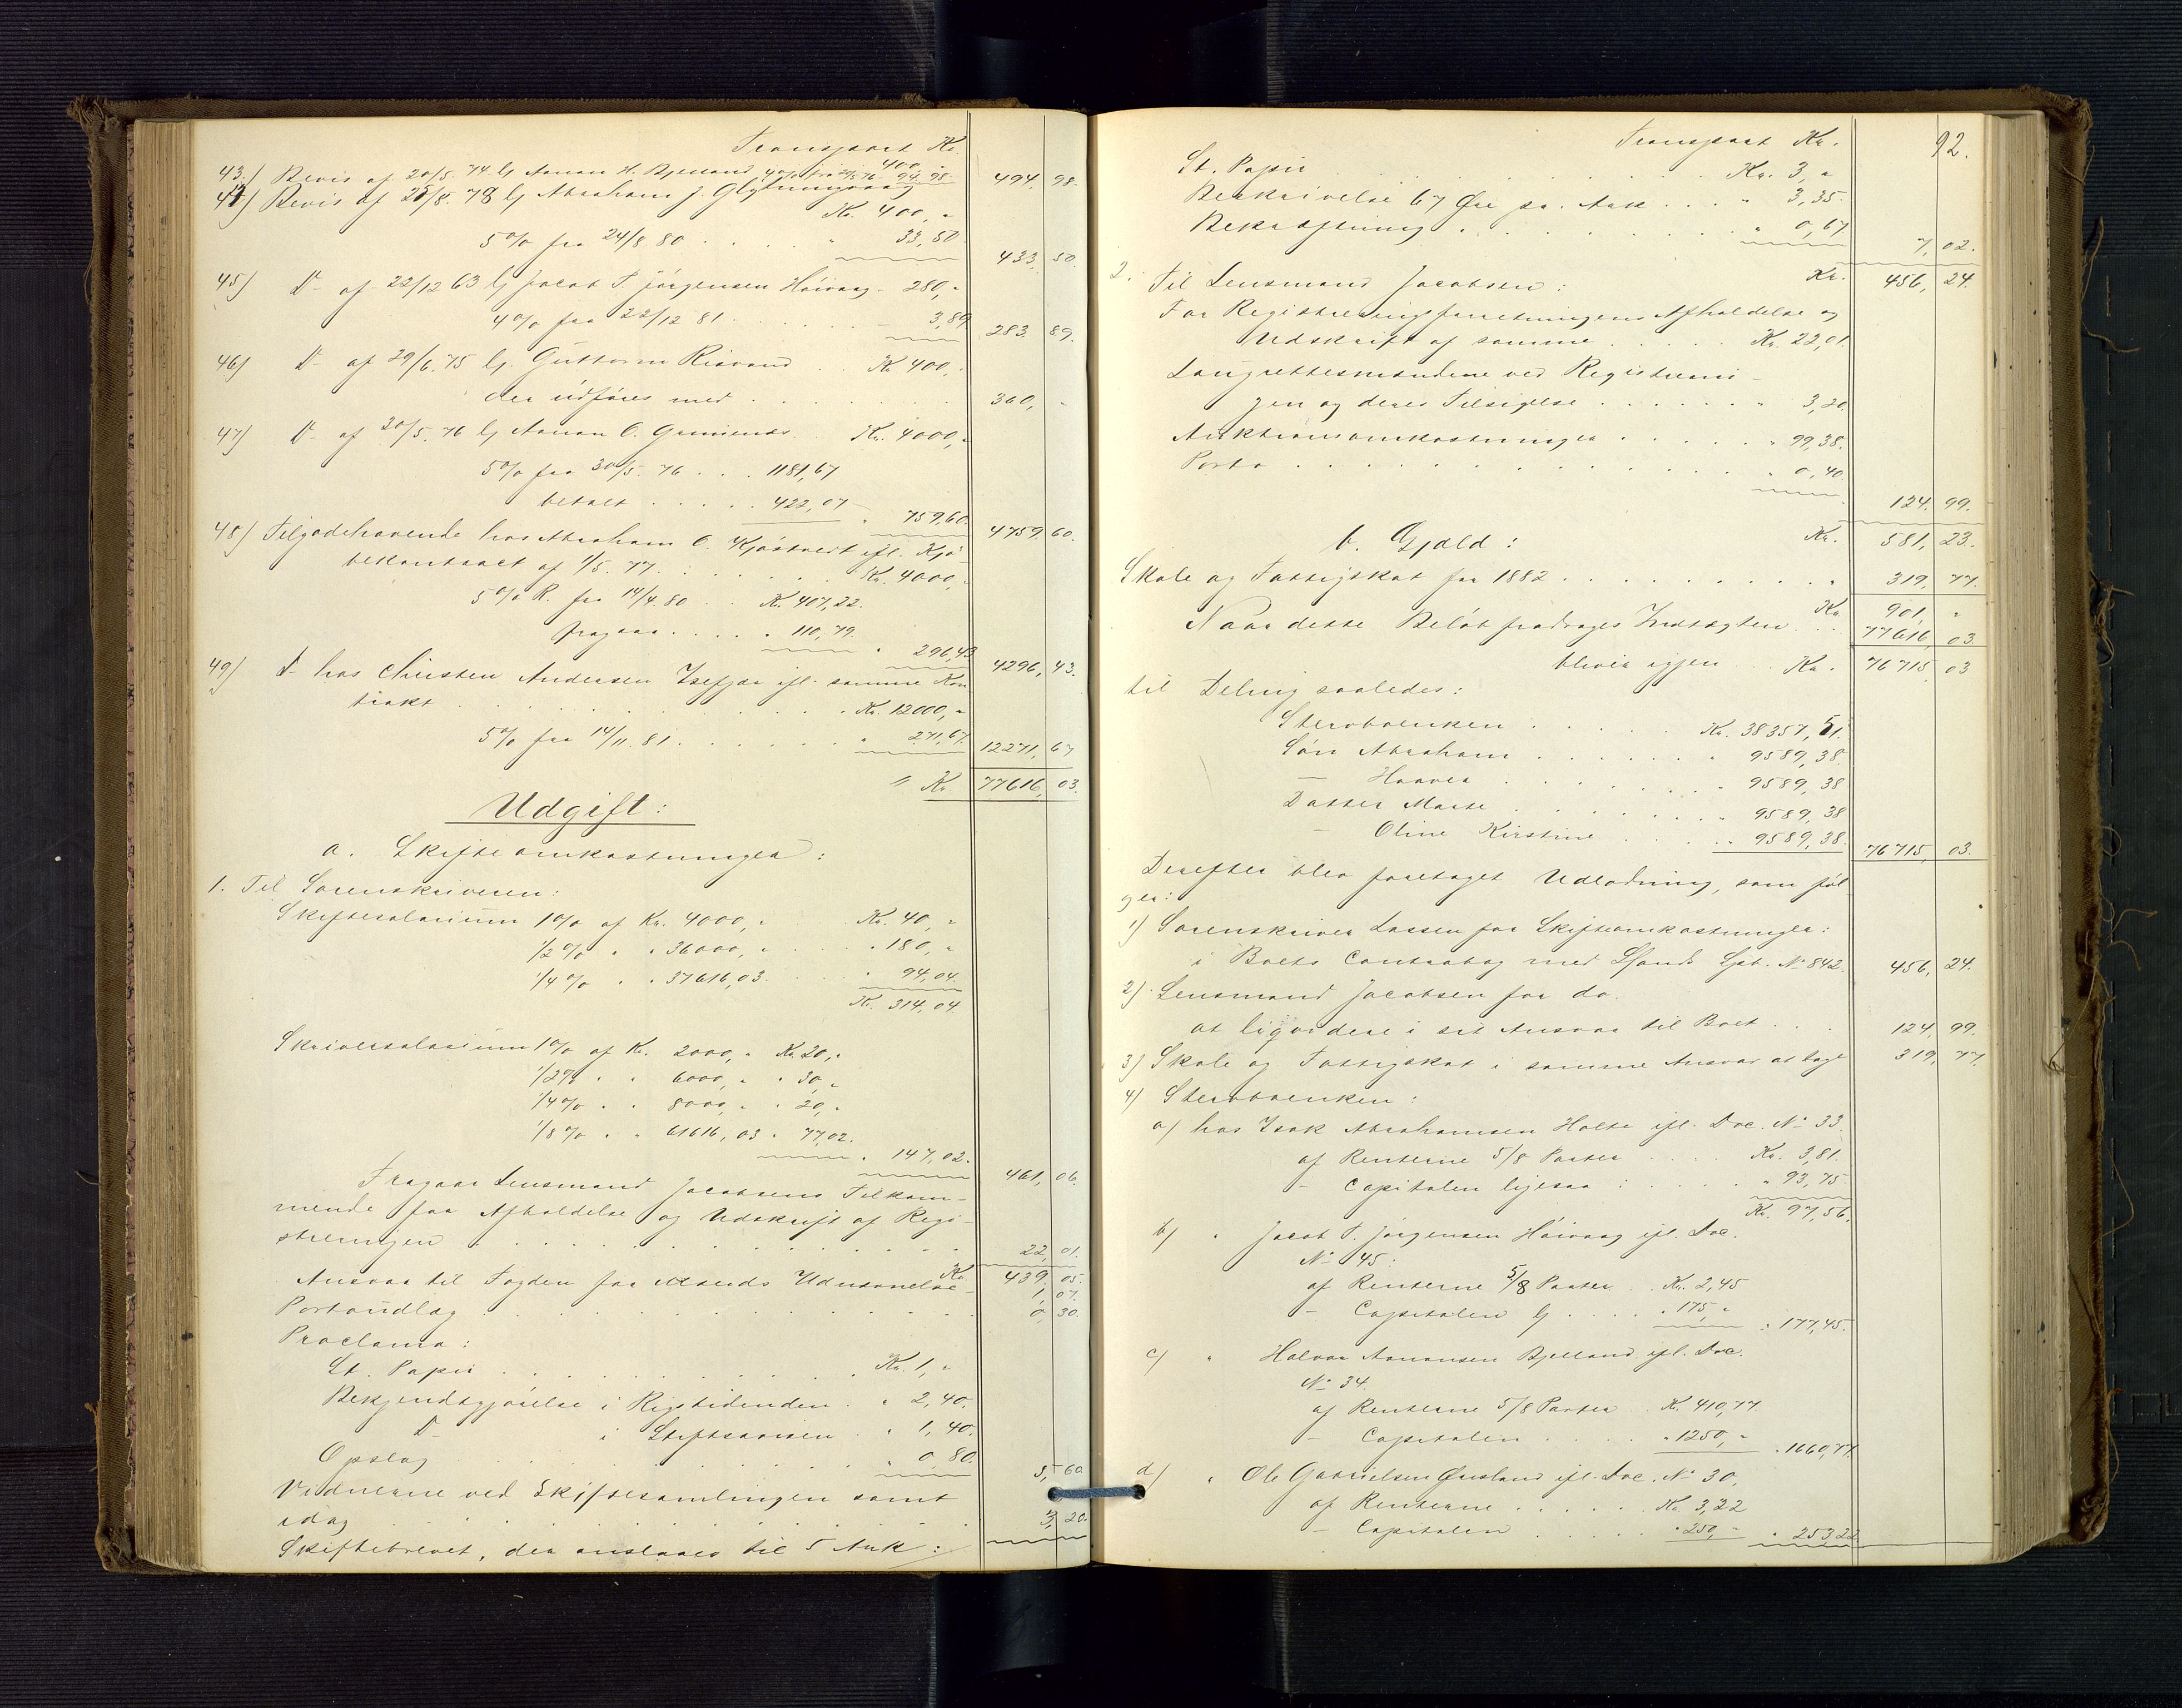 Transport Kr.
43.) Bevis af 20/5. 74 fr Aanon H. Bjelland 4% fra 20/5 76 400,- 94,98 494 98.
44) Bevis af 25/8. 78 fr Abraham J. Kr. 400,-
5% fra 24/8 80 . . . . " 33,50 433, 50.
45) D- af 22/12 63 fr Jacob T. Jörgensen Höivaag - 280,-
4% fra 22/12 81 . . . . - 3,89 283. 89.
46) D- af 29/6. 75 fr. Guttorm Risvand . . Kr 400,-
der udföres med . . . . . . 360, -
47) D- af 30/5. 76 fr Aanon O. Kr. 4000,-
5% fra 30/5. 76 . . . 1181,67
betalt . . . . . 422,07 " 759,60. 4759, 60.
48) Tilgodehavende hos Abraham O. Kjöstvedt ifl. Kjö-
bekontract af 1/5. 77. . . . . . . Kr. 4000,-
5% R. fra 14/4. 80 . . Kr. 407,22.
fragaar . . . . . " 110,79. " 296,43 4296, 43.
49) D- hos Christen Andersen Isefjær ifl. samme Kon
trakt . . . . . . . . Kr. 12000,-
5% fra 14/11. 81 . . . . . . " 271,67. 12271, 67
" Kr. 77616, 03.
Udgift:
a. Skifteomkostninger:
1. Til Sorenskriveren:
Skiftesalarium 1% af Kr. 4000,- Kr. 40,-
1/2% " " 36000,- . . " 180,-
1/4% " " 37616,03. " 94,04.
Kr. 314,04.
Skriversalarium 1% af Kr. 2000,- Kr 20,-
1/2% " " 6000,- " 30,-
1/4% " " 8000,- " 20,-
1/8% " " 61616,03 " 77,02.
" 147,02. 461, 06.
Fragaar Lensmand Jacobsens Tilkom-
mende for Afholdelse og Udskrift af Regi-
streringen . . . . . . . . 22, 01.
Kr. 439, 05.
Ansvar til Fogden for Udnævnelse 1, 07.
Portoudlæg . . . . . . . . 0, 30.
Proclama:
St. Papir . . . . . . . Kr. 1,-
Bekjendtgjörelse i Rigstidenden . " 2,40.
D- i Stiftsavisen . " 1,40.
Opslag . . . . . . . " 0,80. 5, 60.
Vidnerne ved Skiftesamlingen samt
idag . . . . . . . . . . 3, 20.
Skiftebrevet, der anslaaes til 5 Ark:
92.
Transport Kr.
St. Papir . . . . . . . . Kr. 3,-
Beskrivelse 67 Öre pr. Ark . . . " 3,35.
Bekræftning . . . . . . . " 0,67 7, 02.
Kr. 456, 24.
2. Til Lensmand Jacobsen:
For Registreringsforretningens Afholdelse og
Udskrift af samme . . . . . Kr. 22,01.
Laugrettesmændene ved Registrerin-
gen og deres Tilsigelse . . . . . . " 3,20.
Auktionsomkostninger . . . . . " 99,38.
Porto . . . . . . . . . " 0,40. 124, 99.
Kr. 581, 23.
b. Gjæld:
Skole og Fattigskat for 1882 . . . . . . . . . . " 319, 77.
Kr. 901, -
Naar dette Belöb fradrages Indtægten . . 77616, 03
bliver igjen . . Kr. 76715, 03
til Deling saaledes:
Stervboenken . . . . . . Kr. 38357,51.
Sön Abraham . . . . . . . " 9589,38.
— Haaver . . . . . . . " 9589,38
Datter Marte . . . . . . " 9589,38
— Oline Kirstine . . . . . " 9589,38. 76715, 03.
Derefter blev foretaget Udlodning, som föl-
ger:
1) Sorenskriver Lassen for Skifteomkostninger:
i Boets Contrabog med Lsands Spb. No 842. 456, 24.
2) Lensmand Jacobsen for do.
at liqvidere i sit Ansvar til Boet . . . 124, 99.
3) Skole og Fattigskat i samme Ansvar at tage 319, 77.
4) Stervboenken:
a) hos Isak Abrahamsen Holte ifl. Doc. No 33.
af Renterne 5/8 Parter . . . . Kr. 3,81.
- Capitalen ligesaa . . . . . " 93,75
Kr. 97,56.
b) " Jacob T. Jörgensen Höivaag ifl. Doc.
No 45:
af Renterne 5/8 Parter . . Kr. 2,45
- Capitalen fr . . . . " 175,- " 177,45.
c) " Halvor Aanonsen Bjelland ifl. Doc.
No 34.
af Renterne 5/8 Parter . Kr. 410,77.
- Capitalen . . . . . " 1250,- " 1660,77.
d) " Ole Gabrielsen Öresland ifl. Doc. No 30,
af Renterne . . . . . . Kr 3,22
- Capitalen . . . . . " 250,- " 253,22